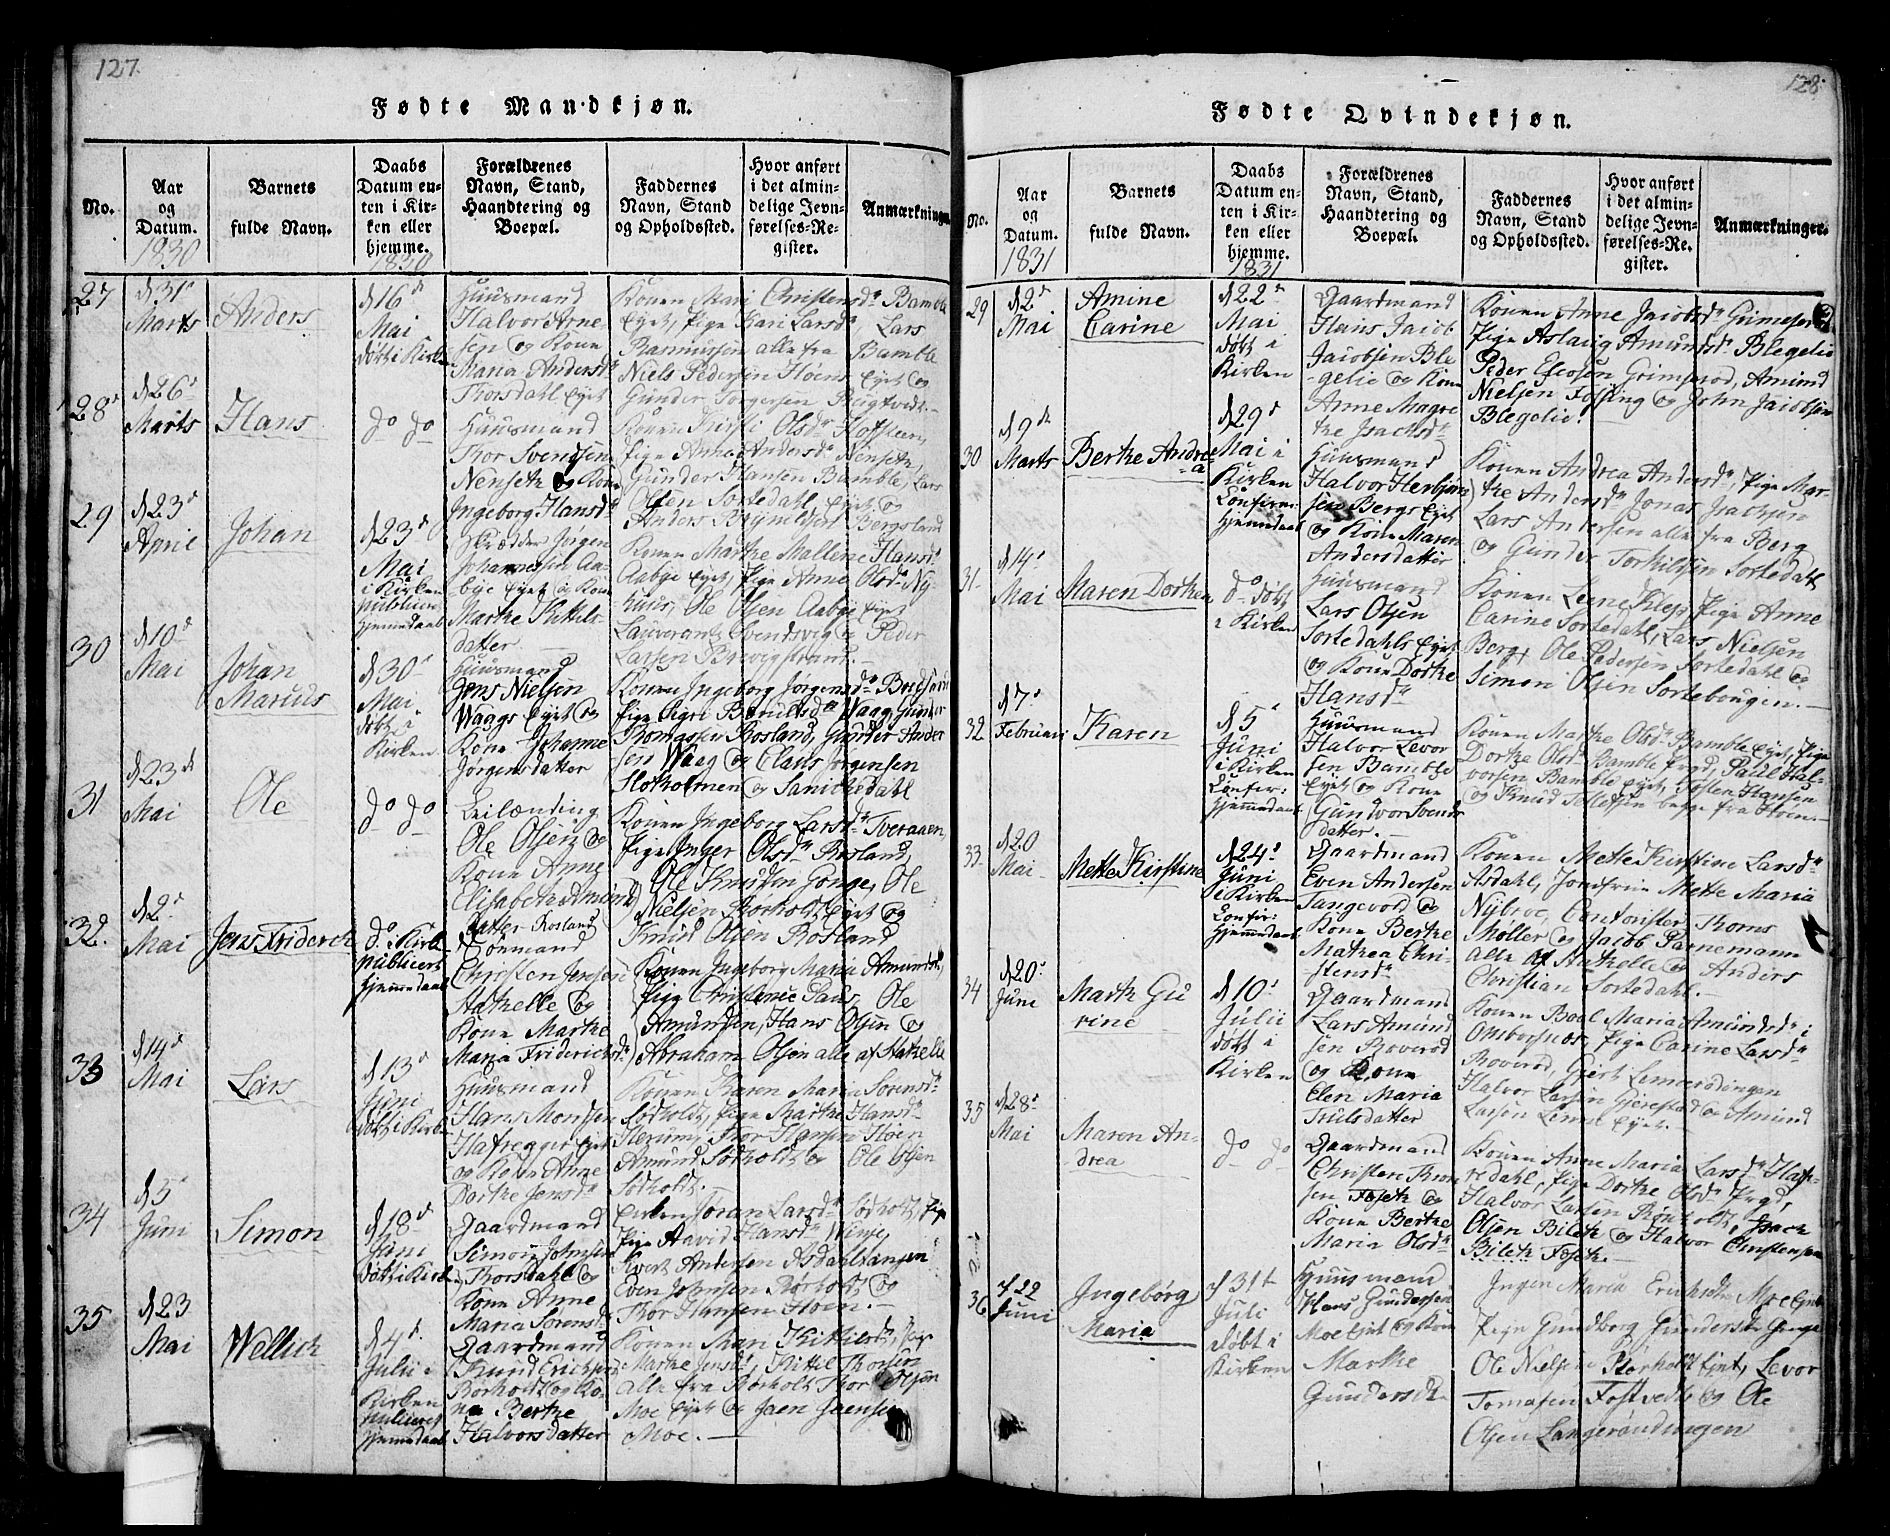 127.
Fødte Mandkjøn.
No.
Aar og Datum.
1830
Barnets fulde Navn.
Daabs Datum enten i Kirken eller hjemme.
1830
Forældrenes Navn, Stand, Haandtering og Boepæl.
Faddernes Navn, Stand og Opholdssted.
Hvor anført i det almindelige Jevnførelses-Register.
Anmærkninger
27
d 31t
Marts
Anders
d 16de
Mai
døbt i Kirken
Huusmand
Halvor Arne-
sen og Kone
Maria Andersdr
Thorsdahl Eyet
Konen Mari Christensdr Bamble
Eyet, Pige Kari Larsdr, Lars
Rasmussen alle fra Bamble
Niels Pedersen Høens Eyet og
Gunder Torgersen
28
d 26
Marts
Hans
do do
Huusmand
Thor Svendsen
Nenseth og Kone
Ingeborg Hansdr
Konen Kirsti Olsdr
Pige Anne Andersdr Nenseth,
Gunder Hansen Bamble, Lars
Olsen Sortedahl Eyet og
Anders Brynildsen Bergsland
29
d 23
April
Johan
d 23d
Mai
i Kirken
publiceret
hjemmedaab
Skrædder Jørgen
Johannesen Aa-
bye Eyet og Kone
Marthe Kittils-
datter
Konen Marthe Mallene Hansdr
Aabye Eyet, Pige Anne Olsdr Ny-
huus, Ole Olsen Aabye Eyet
Svendsvig og Peder
Larsen
30
d 10
Mai
Johan
Marius
d 30
Mai
døbt i
Kirken
Huusmand
Jens Nielsen
Waags Eyet og
Kone Johanne
Jørgensdatter
Konen Ingeborg Jørgensdr
Pige Sigri Waag, Gunder
Thomassen Rosland, Gunder Ander
sen Waag og Claus Jørgensen
Slotholmen og Sanickedahl
31
d 23de
Mai
Ole
do do
Leilænding
Ole Olsen og
Kone Anne
Elisabeth Edmund
datter Rosland
Konen Ingeborg Larsdr Tveraaen,
Pige Inger Olsdr Rosland,
Ole Knudsen Gonge, Ole
Nielsen Eyet og
Knud Olsen Rosland
32.
d 2
Mai
Jens Friderich
do i Kirk
publicert
hjemmedaab
Christen Jensen
Stathelle og
Kone Marthe
Maria Friderichsdr
Konen Ingeborg Maria Amundsdr,
Pige Christence Paus, Ole
Amundsen, Hans Olsen og
Abraham Olsen alle af Stathelle
33
d 14d
Mai
Lars
d 13d
Juni
døbt i Kirk
Huusmand
Hans Monsen
Eyet
og Kone Anne
Dorthe Jensdr
Konen Karen Maria Sorensdr
Sødholt, Pige Marthe Hansdr
Herum, Thor Hansen Høen
Amund Sørholt og Ole Olsen
Sødholt.
34
d 5
Juni
Simon
d 18d
Juni
døbt i Kirk
Gaardmand
Simon Johnsen
Thorsdahl og
Kone Anne
Maria Sørensdr
Enken Jøran Larsdr Sødholt
Pige Aavid Hansdr Vinje,
Kvert Andersen Asdahlstangen
Even Johnsen Rørholt og
Thor Hansen Høen.
35
d 23
Mai
Wellich
d 4
Julii i
Kirken
publiceret
hjemmedaab
Gaardmand
Knud Erichsen
Rørholt og Ko-
ne Berthe
Halvorsdatter
Konen Kittilsdr, Pige
Marthe Jensdr, Kittel Thorsen
alle fra Rørholt Thor Olsen
Moe Eyet og Jaen Jaensen
Moe.
128
Fødte Qvindekjøn.
No.
Aar og Datum.
1831
Barnets fulde Navn.
Daabs Datum enten i Kirken eller hjemme.
1831
Forældrenes Navn, Stand, Haandtering og Boepæl.
Faddernes Navn, Stand og Opholdssted.
Hvor anført i det almindelige Jevnførelses-Register.
Anmærkninger.
29
d 2
Mai
Amine
Carine
d 22
Mai
døbt i
Kirken
Gaardmand
Hans Jacob
Jacobsen Ble-
gelie og Kone
Anne Magre
the Isachsdr
Konen Anne Jacobsdr Grimserod
Pige Aslaug Amundsdr Blegelie
Peder Grimserod, Amund
Nielsen Fossing og John Jacobsen
Blegelie.
30
d 9de
Marts
Berthe Andre-
a
d 29
Mai i
Kirken
Confirm:
hjemmedaab
Huusmand
Halvor Herbjørn
sen Bergs Eyet
og Kone Maren
Andersdatter
Konen Andrea Andersdr, Pige Mar-
the Andersdr Jonas Isachsen
Lars Andersen alle fra Berg
og Gunder Torkilsen Sortedahl
31
d 14
Mai
Maren Dorthea
do døbt
i Kirken
Huusmand
Lars Olsen
Sortedahls Eyet
og Kone Dorthe
Hansdr
Konen Lene Klep, Pige Anne
Carine Sortedahl, Lars Nielsen
Berg, Ole Pedersen Sortedahl og
Simon Olsen Sortebongen.
32
d 7
Februari
Karen
d 5
Juni
i Kirken
Confir:
hjemmedaab
Huusmand
Halvor Levor
sen Bamble
Eyet og Kone
Gundvor Svends
datter.
Konen Marthe Olsdr Bamble Eyet, Pige
Dorthe Olsdr Bamble Præd, Paul Hal-
vorsen Bamble Eyet, Tosten Hansen
og Knud Tellefsen begge fra Høen.
33
d 20
Mai
Mette Kirstine
d 24
Juni
i Kirken
Confir:
hjemmedaab
Gaardmand
Even Andersen
Langerod og
Kone Berthe
Mathea Chri-
stensdr
Konen Mette Kirstine Larsdr
Asdahl, Jomfrue Mette Maria
Nybroe, Contorister Thoms
Møller og Jacob Parnemann
alle af Stathelle og Anders
Christian Sortedahl.
34
d 20
Juni
Marth Gu
rine
d 10
Julii
døbt i
Kirken
Gaardmand
Lars Amund
sen Roverod
og Kone
Elen Maria
Trulsdatter
Konen Boel Maria Amundsdr i
Pige Carine Larsdr
Roverod, Giert
Halvor Larsen Gjerestad og Amund
Larsen Eyet.
35
d 28
Mai
Maren An-
drea
do do
Gaardmand
Christen Thor
sen Foseth og
Kone Berthe
Maria Olsdr
Konen Anne Maria Larsdr
Pige Dorthe Olsdr
Halvor Larsen Rørholt, Isach
Olsen Bileth og Halvor Christensen
Bileth Foseth.
36
d 22
Juni
Ingebørg
Maria
d 31t
Juli
døbt i
Kirken
Huusmand
Hans Gundersen
Moe Ejet og Kone
Marthe
Gundersdtr
Inger Maria Erichsdtr Moe Ejet
Pige Gundborg Gundersdtr
Ole Nielsen Rørholt Ejet, Levor
Tomasen Fostvedt og Ole
Olsen Langerøndningen